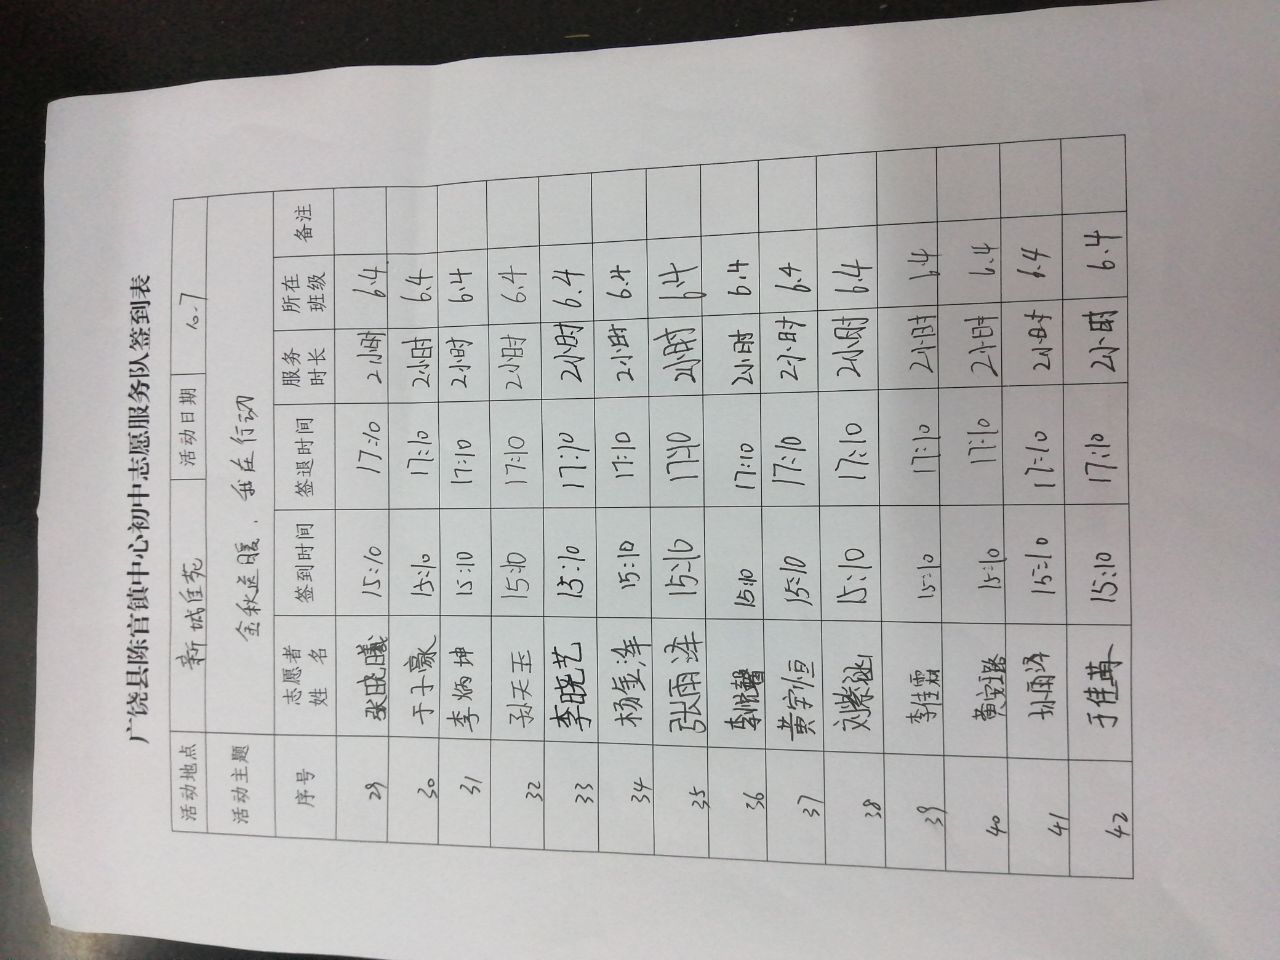 广饶县陈官镇中心初中志愿服务队签到表
活动地点 新城佳苑 活动日期 10.7
活动主题 金秋送暖、我在行动
序号 志愿者姓名 签到时间 签退时间 服务时长 所在班级 备注
29 张晓曦 15:10 17:10 2小时 6.4
30 于子豪 15:10 17:10 2小时 6.4
31 李炳坤 15:10 17:10 2小时 6.4
32 孙天玉 15:10 17:10 2小时 6.4
33 李晓艺 15:10 17:10 2小时 6.4
34 杨金泽 15:10 17:10 2小时 6.4
35 张雨泽 15:10 17:10 2小时 6.4
36 李悦馨 15:10 17:10 2小时 6.4
37 黄宇恒 15:10 17:10 2小时 6.4
38 刘紫涵 15:10 17:10 2小时 6.4
39 李佳霖 15:10 17:10 2小时 6.4
40 黄 15:10 17:10 2小时 6.4
41 孙雨泽 15:10 17:10 2小时 6.4
42 于佳 15:10 17:10 2小时 6.4